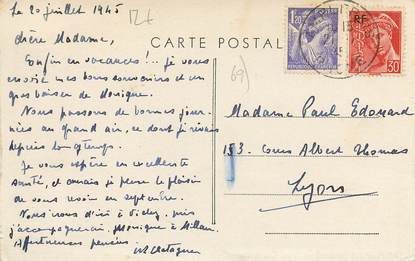 Le 20 juillet 1945
12f
Chère Madame,
Enfin en vacances !... je vous
envoie mes bons souvenirs et un
gros baiser de Monique.
Nous passons de bonnes jour-
nées au grand air, ce dont je rêvais
depuis longtemps.
Je vous espère en excellente
santé, et aurais je pense le plaisir
de vous revoir en septembre.
Nous irons d'ici à Vichy, puis
j'accompagnerai Monique à Millau.
Affectueuses pensées.
CARTE POSTAL
69)
1F20
RF
30
Madame Paul Edouard
153. Cours Albert Thomas
Lyon